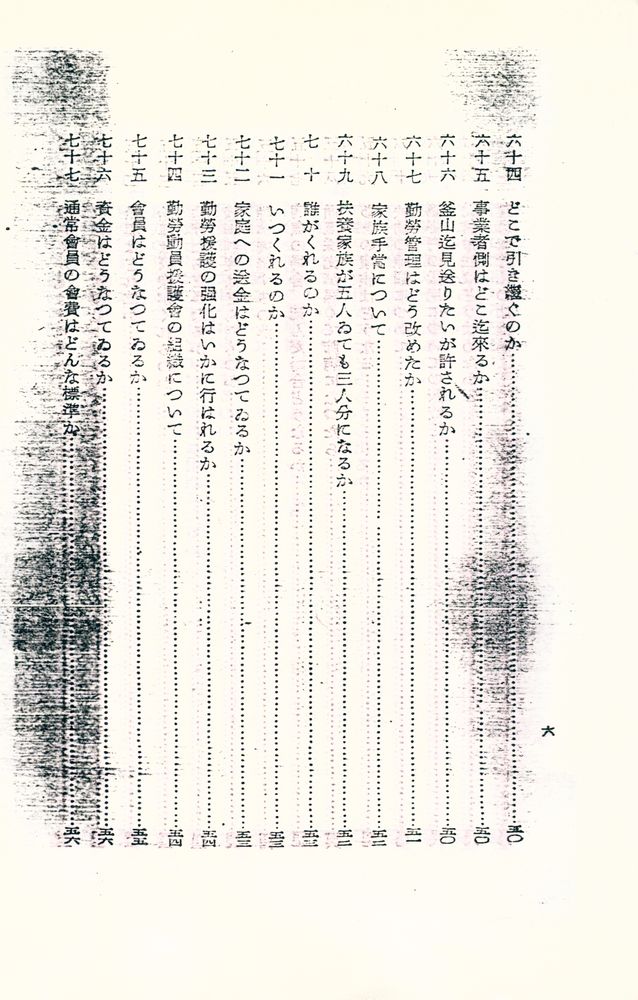 六十四 どこで引き繼ぐのか……五〇
六十五 事業者側はどこ迄來るか……五〇
六十六 釜山迄見送りたいが許されるか……五〇
六十七 勤勞管理はどう改めたか……五一
六十八 家族手當について……五二
六十九 扶養家族が五人ゐても三人分になるか……五二
七十 誰がくれるのか……五三
七十一 いつくれるのか……五三
七十二 家庭への送金はどうなつてゐるか……五三
七十三 勤勞援護の强化はいかに行はれるか……五四
七十四 勤勞動員援護會の組織について……五四
七十五 會員はどうなつてゐるか……五五
七十六 資金はどうなつてゐるか……五六
七十七 通常會員の會費はどんな標準か……五六
六